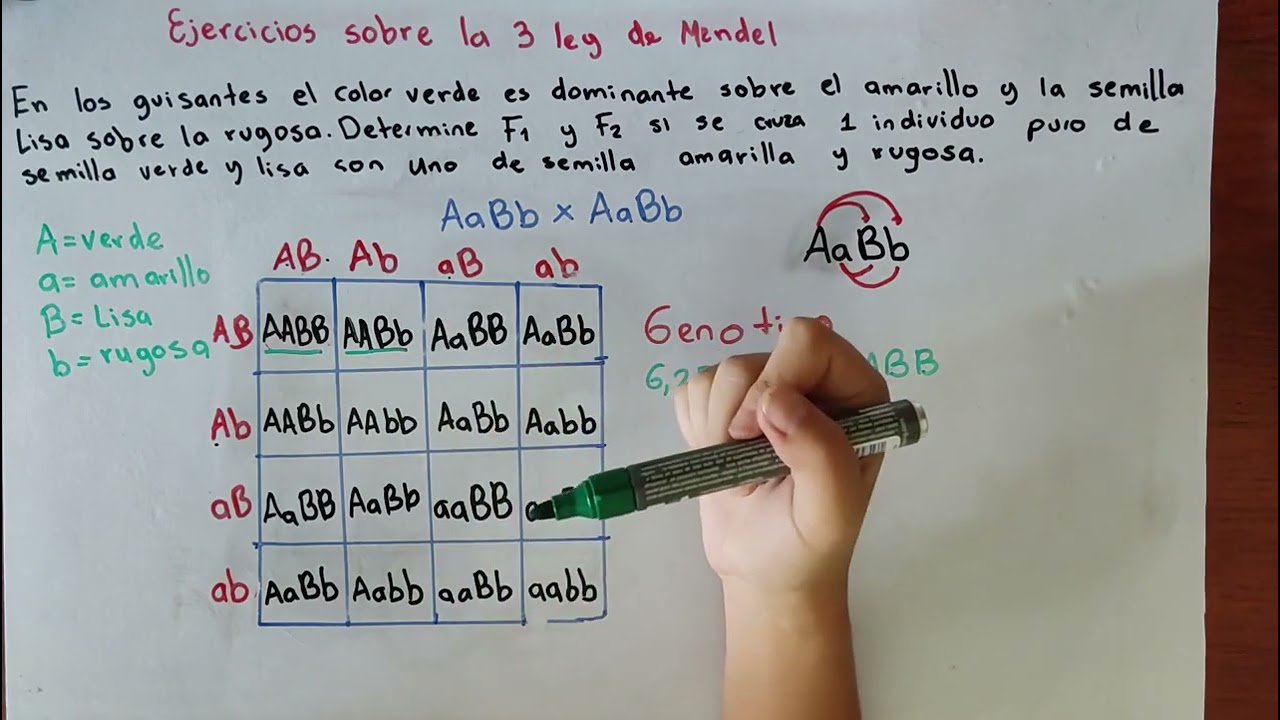 Ejercicios sobre la 3 ley de Mendel
En los guisantes el color verde es dominante sobre el amarillo y la semilla
Lisa sobre la rugosa. Determine F1 y F2 si se cruza 1 individuo puro de
semilla verde y lisa son uno de semilla amarilla y rugosa.
AaBb x AaBb
AaBb
A=verde
a= amarillo
B= Lisa
b= rugosa
AB. Ab aB ab
AB AABB AABb AaBB AaBb
Ab AABb AAbb AaBb Aabb
aB AaBB AaBb aaBB
ab AaBb Aabb aaBb aabb